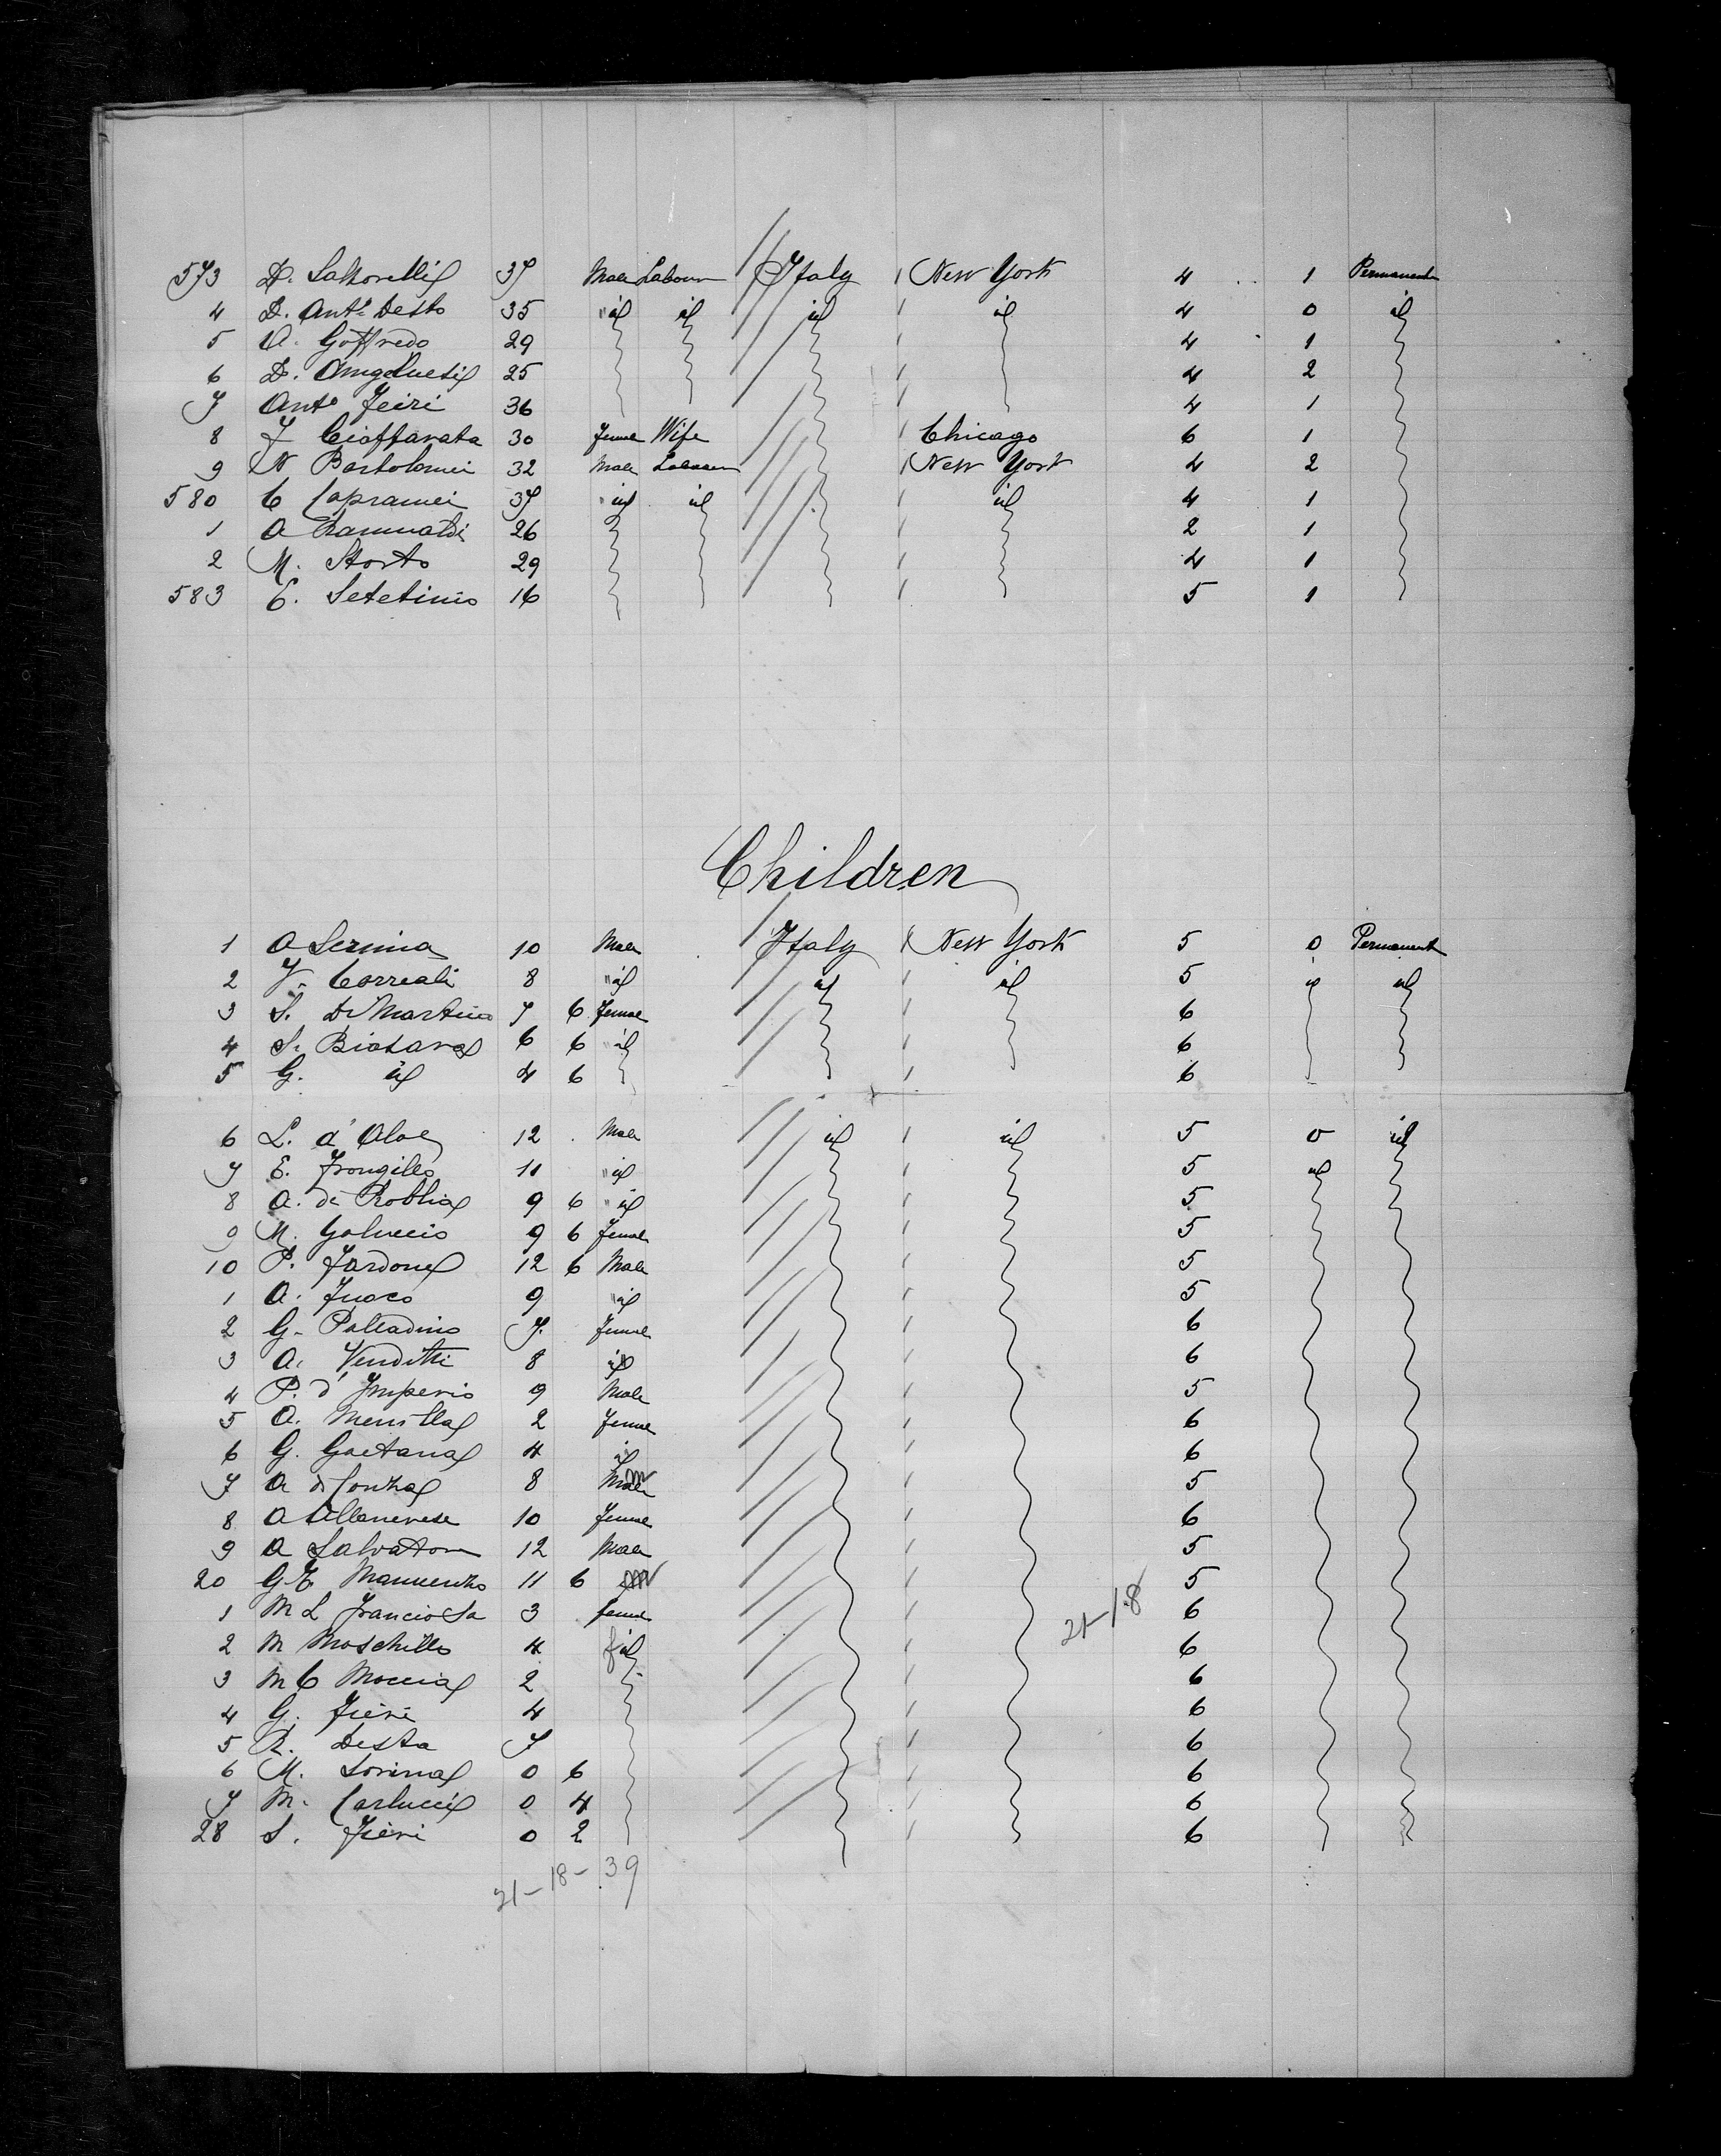 573 D. Sattorelli 37 Male Labour Italy New York 4 1 Permanent
4 D. Anto Desto 35 " id id id id 4 0 id
5 A. Goffredo 29 4 1
6 D. 25 4 2
7 Anto Feiri 36 4 1
8 F Cioffarata 30 Femal Wife Chicago 6 1
9 N Bartolomei 32 Male Labour New York 4 2
580 C Capramei 37 " id id id 4 1
1 A Ramualdi 26 2 1
2 M. Storto 29 4 1
583 E. Setetinio 16 5 1
Children
1 A Sernia 10 Male Italy New York 5 0 Permanent
2 V. Correali 8 " id id id 5 id id
3 S. Di Martino 7 6 Femal 6
4 S. 6 6 " id 6
5 G. id 4 6 6
6 L. d'Aloe 12 Male id id 5 0 id
7 E. Frongillo 11 " id 5 id
8 A. di Robbia 9 6 " id 5
9 M. Galuccio 9 6 Femal 5
10 P. Fardone 12 6 Male 5
1 A. Fuoco 9 " id 5
2 G. Palladino 7. Femal 6
3 A. Venditti 8 id 6
4 P. d'Imperio 9 Male 5
5 A. 2 Femal 6
6 G. Gaetana 4 id 6
7 A di Conza 8 Male 5
8 A Albanese 10 Femal 6
9 A Salvatore 12 Male 5
20 G E 11 6 5
1 M L Franciosa 3 Femal 21-18 6
2 M Moschillo 4 f id 6
3 M C Moccia 2 6
4 G. Fieri 4 6
5 R. Desta 7 6
6 M. Sorina 0 6 6
7 M. Carlucci 0 4 6
28 S. Fieri 0 2 6
21-18-39